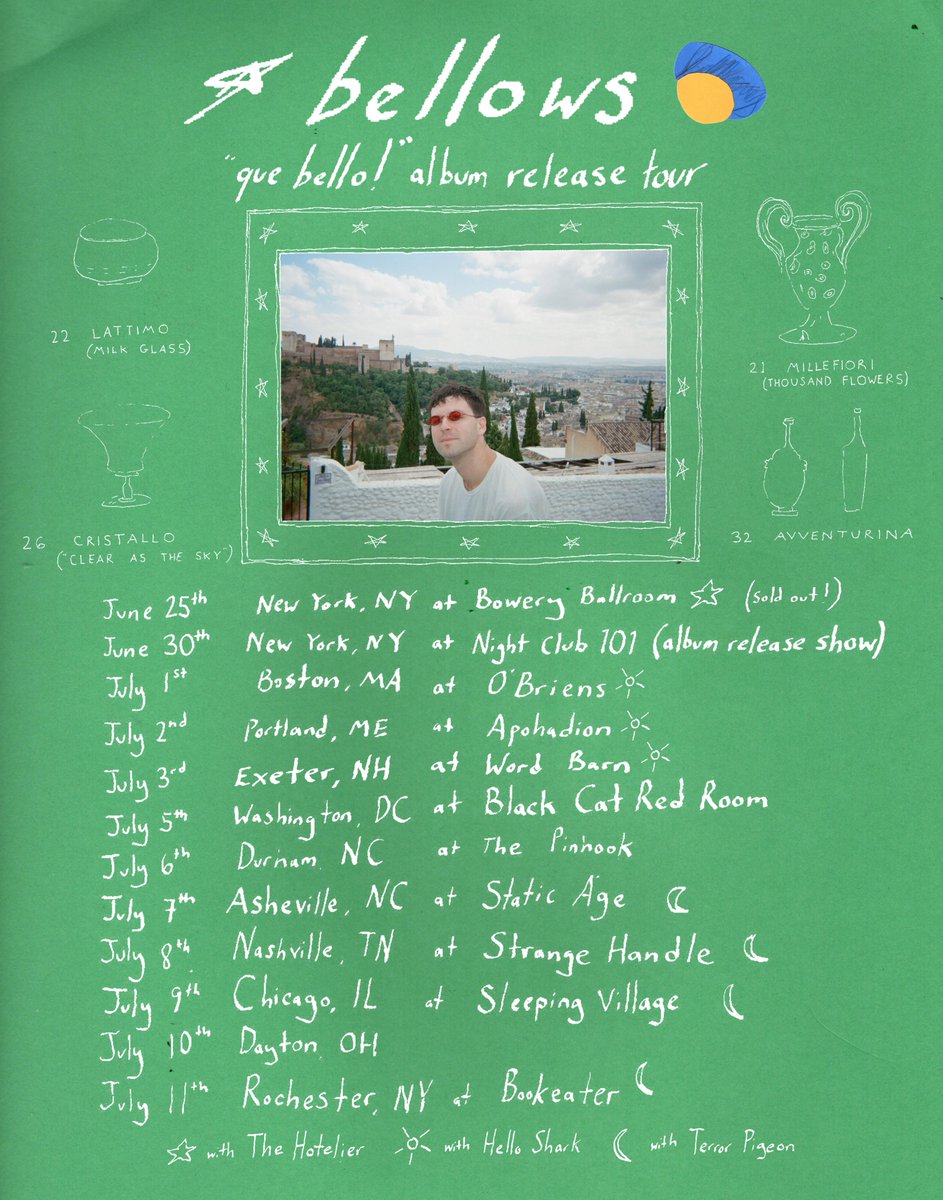 bellows
"que bello!" album release tour
22 LATTIMO
(MILK GLASS)
21 MILLEFIORI
(THOUSAND FLOWERS)
26 CRISTALLO
("CLEAR AS THE SKY")
32 AVVENTURINA
June 25th New York, NY at Bowery Ballroom (sold out!)
June 30th New York, NY at Night Club 101 (album release show)
July 1st Boston, MA at O'Briens
July 2nd Portland, ME at Apohadion
July 3rd Exeter, NH at Word Barn
July 5th Washington, DC at Black Cat Red Room
July 6th Durham, NC at The Pinhook
July 7th Asheville, NC at Static Age
July 8th Nashville, TN at Strange Handle
July 9th Chicago, IL at Sleeping Village
July 10th Dayton, OH
July 11th Rochester, NY at Bookeater
with The Hotelier with Hello Shark with Terror Pigeon